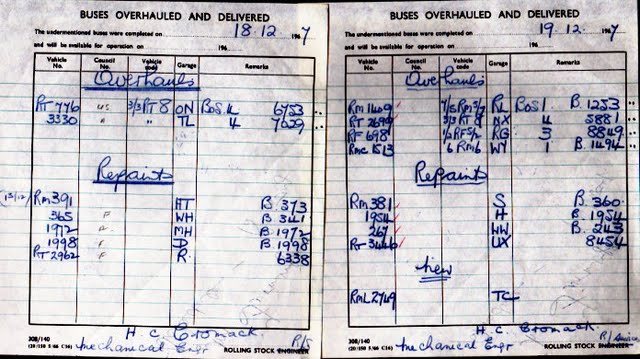 BUSES OVERHAULED AND DELIVERED
The undermentioned buses were completed on 18.12. 1967
and will be available for operation on 196
Vehicle No. Council No. Vehicle code Garage Remarks
Overhauls
RT 776 3/3RT8 ON BOS 4 6753
3330 " " TL 4 7029
Repaints
(13/12) RM 391 HT B 373
365 F WH B 341
1972 F MH B 1972
1998 F D B 1998
RT 2962 F R 6338
H. C. Cromack
Mechanical Engr R/S
308/140
(20/150 5/66 C16) ROLLING STOCK ENGINEER
BUSES OVERHAULED AND DELIVERED
The undermentioned buses were completed on 19.12. 1967
and will be available for operation on 196
Vehicle No. Council No. Vehicle code Garage Remarks
Overhauls
RM 1409 RL BOS 1. B. 1253
RT 2699 3/3 RT 8 NX 4 5881
RF 698 RG 3 8849
RMC 1513 6 RM6 WY 1 B. 1494
Repaints
RM 381 S B 360
1954 H B 1954
267 WW B 243
RT 3446 UX 8454
New
RML 2749 TC
H. C. Cromack
308/140
(20/150 5/66 C16) Mechanical Engr ROLLING STOCK ENGINEER